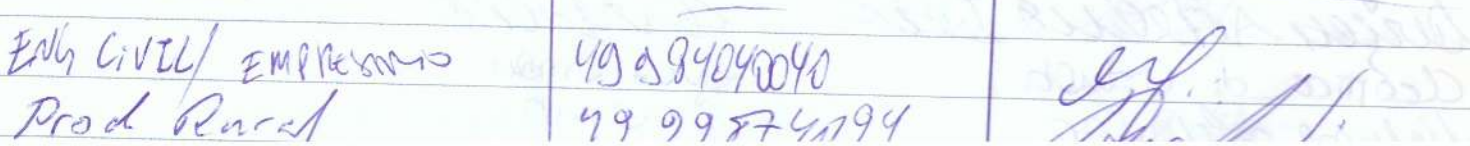 Eng CIVIL/ EMPRESARIO 49984040040
Prod Rural 49 998741194